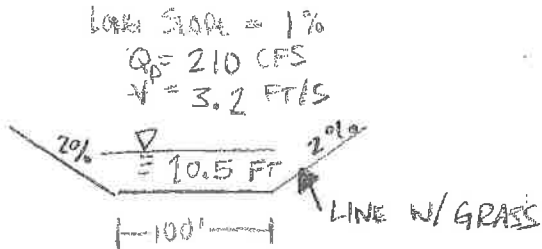 LONG SLOPE = 1%
Qp = 210 CFS
V = 3.2 FT/S
2%
2%
0.5 FT
100'
LINE W/ GRASS